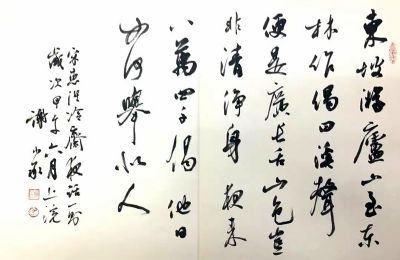 東坡游廬山至東
林作偈曰溪聲
便是廣長舌山色豈
非清淨身夜來
八萬四千偈他日
如何舉似人
宋惠洪冷齋夜話一則
歲次甲午六月上浣
謝小